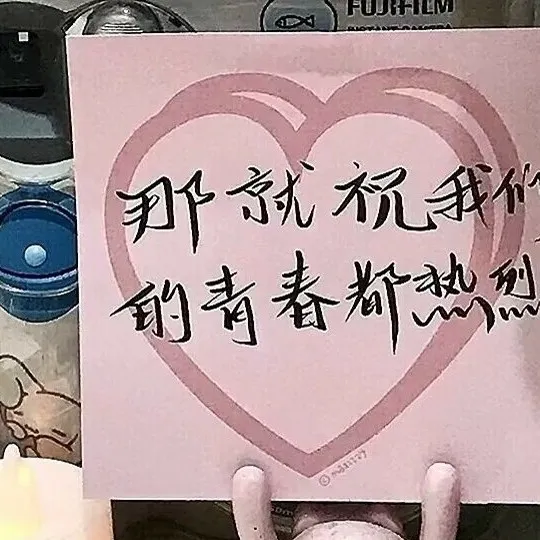 FUJIFILM
INSTANT CAMERA
那就祝我们
的青春都热烈